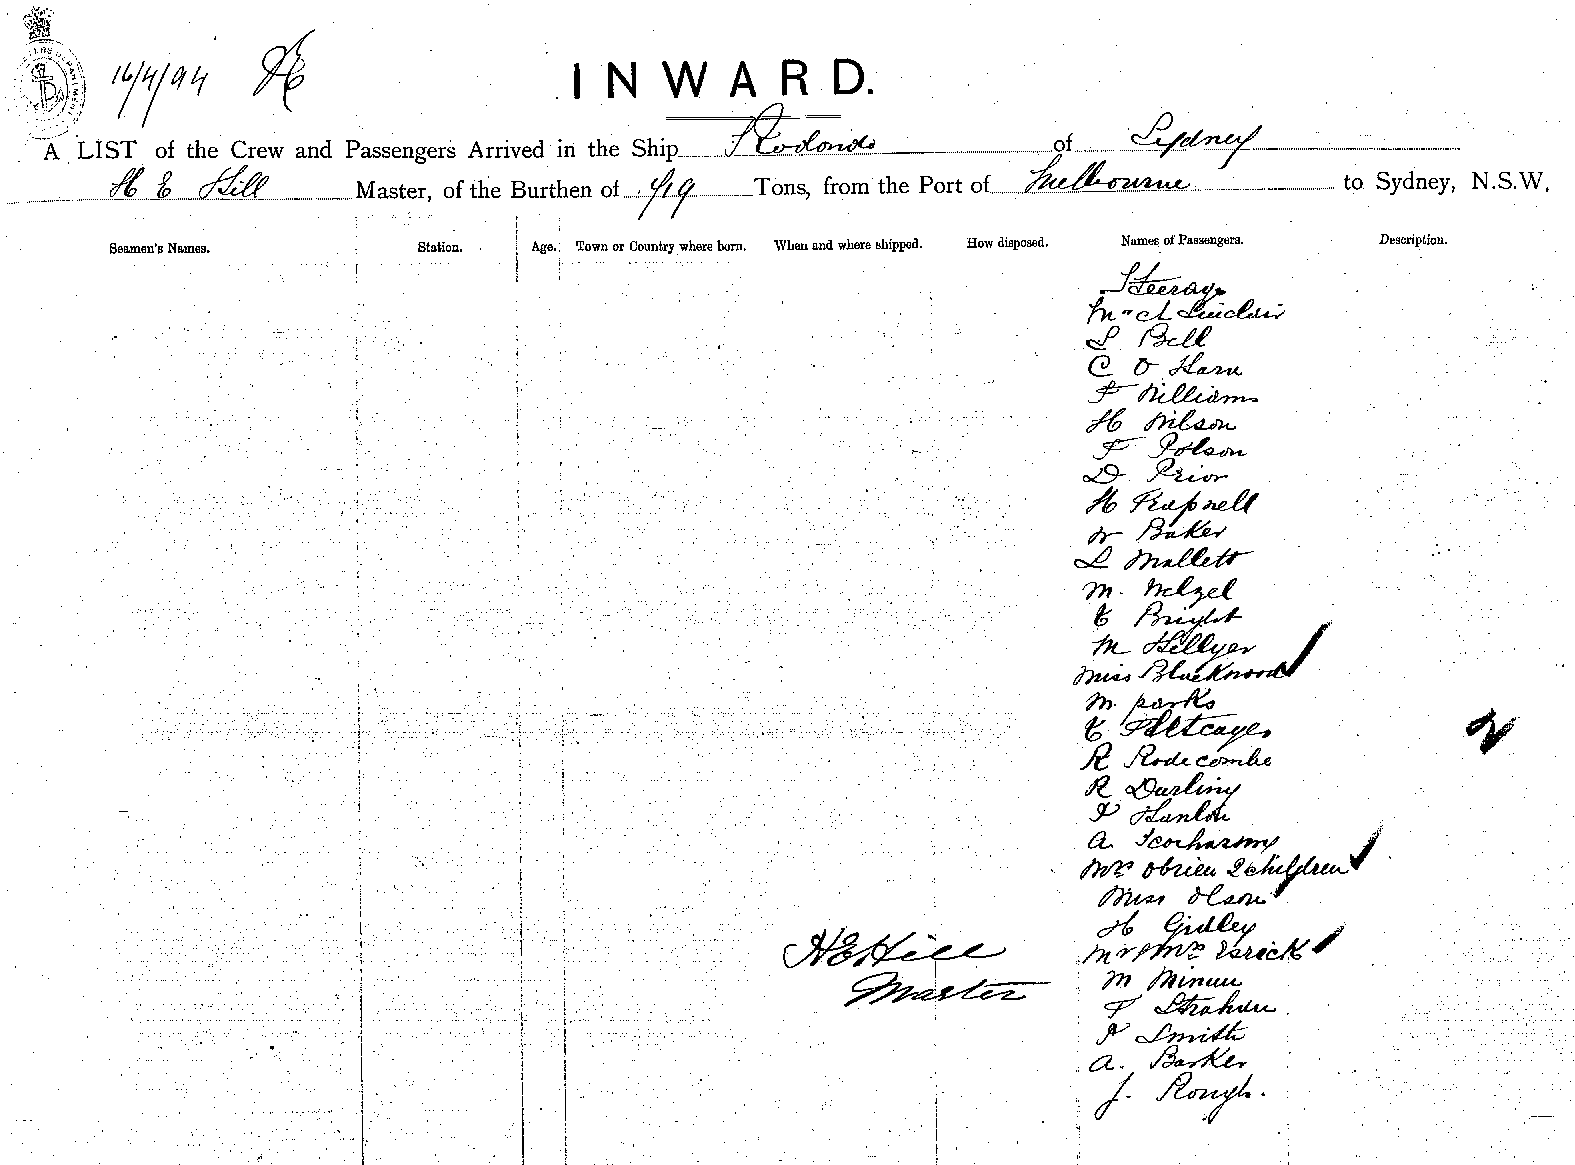 16/4/94
INWARD.
A LIST of the Crew and Passengers Arrived in the Ship Rodondo of Sydney
H E Hill Master, of the Burthen of 719 Tons, from the Port of Melbourne to Sydney, N.S.W.
Seamen's Names. Station. Age. Town or Country where born. When and where shipped. How disposed. Names of Passengers. Description.
Steerage
Sinclair
S Bell
C O Hara
F Williams
H Wilson
F Polson
D Prior
H Trapnell
W Baker
L Mallett
M. Welzel
E Bright
M Hillyer
Miss Blackwood
M. parks
E
R Rodecombe
R Darling
Hanlon
A.
Mrs Obrien 2 children
Miss Olson
H Gidley
H E Hill
Mr & Mrs
Master
M
F Strahan
Smith
A. Barker
J. Rough.